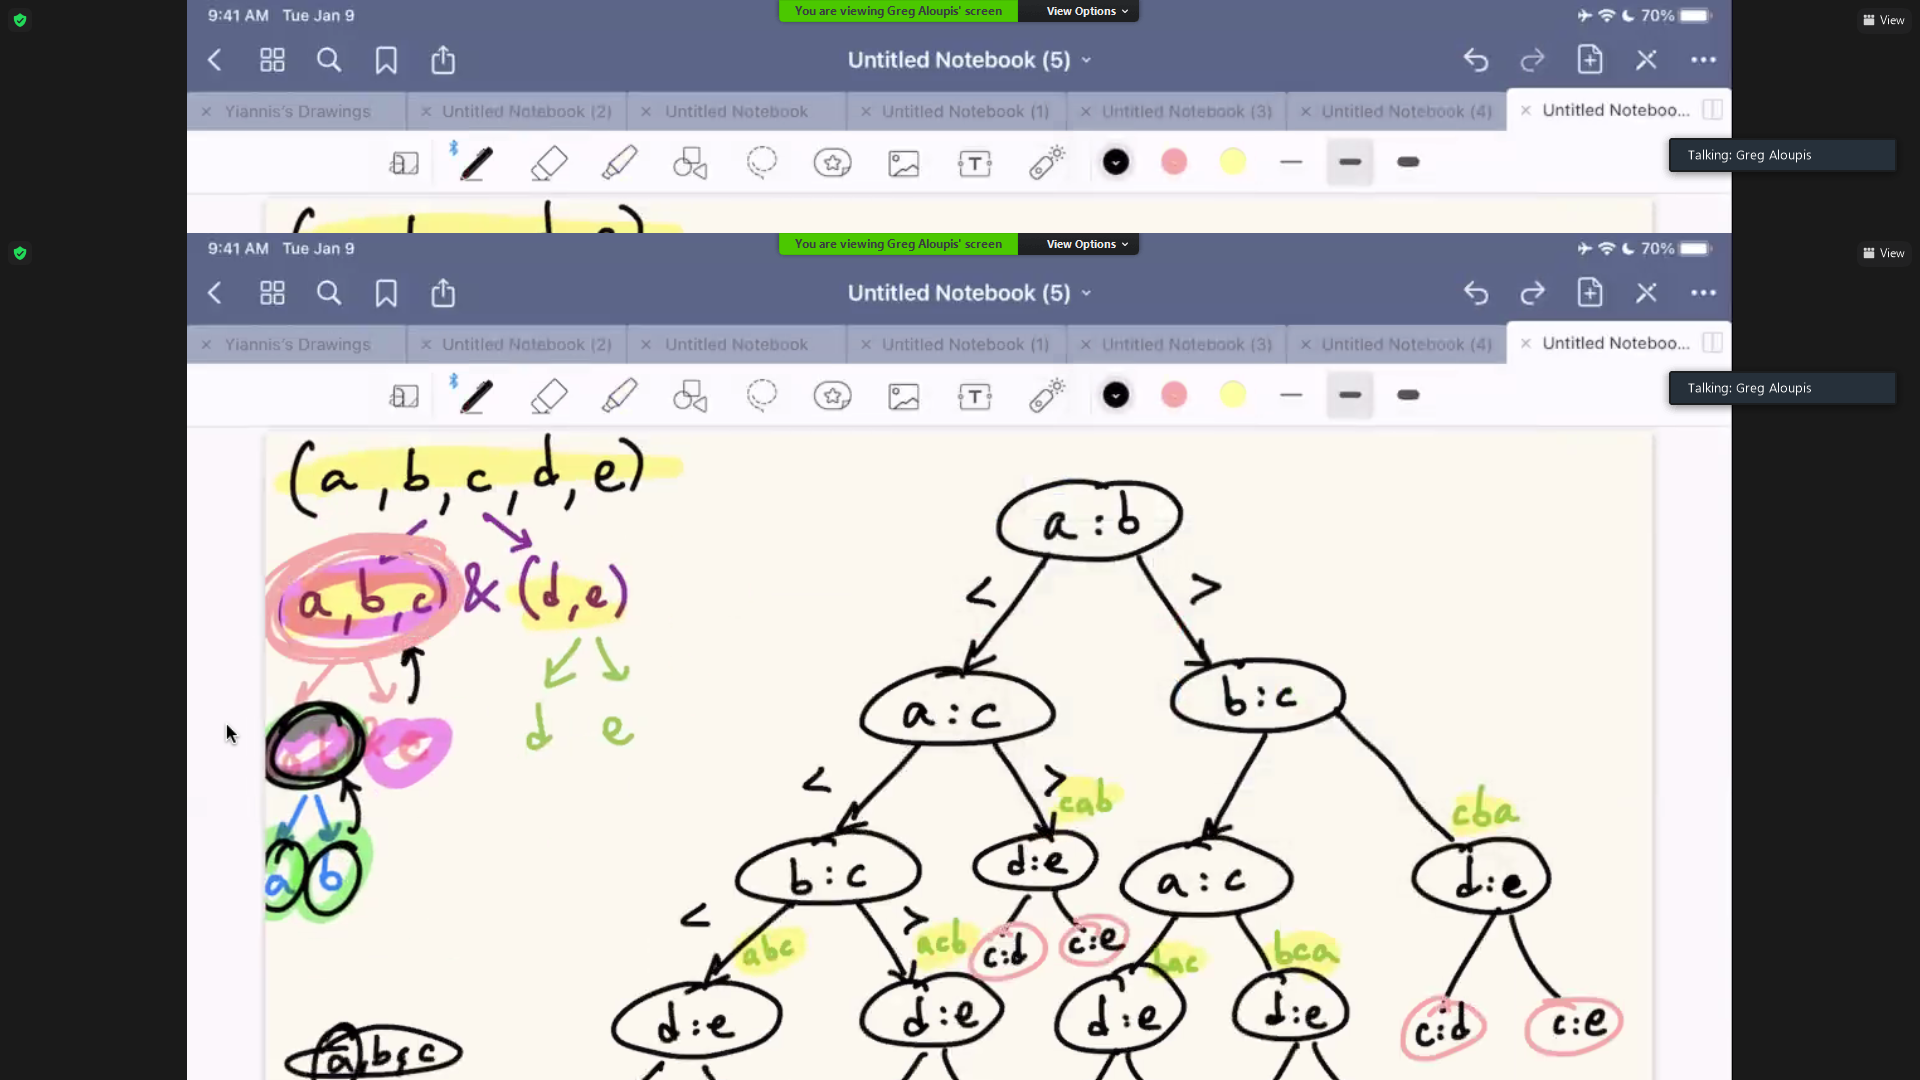 9:41 AM Tue Jan 9
You are viewing Greg Aloupis' screen
View Options
70%
View
Untitled Notebook (5)
Yiannis's Drawings
Untitled Notebook (2)
Untitled Notebook
Untitled Notebook (1)
Untitled Notebook (3)
Untitled Notebook (4)
Untitled Noteboo...
Talking: Greg Aloupis
9:41 AM Tue Jan 9
You are viewing Greg Aloupis' screen
View Options
70%
View
Untitled Notebook (5)
Yiannis's Drawings
Untitled Notebook (2)
Untitled Notebook
Untitled Notebook (1)
Untitled Notebook (3)
Untitled Notebook (4)
Untitled Noteboo...
Talking: Greg Aloupis
(a, b, c, d, e)
a:b
(a, b, c) & (d, e)
< >
d e
a:c b:c
< >
cab cba
a b
b:c d:e a:c d:e
< >
abc acb c:d c:e bac bca
d:e d:e d:e d:e c:d c:e
a, b, c